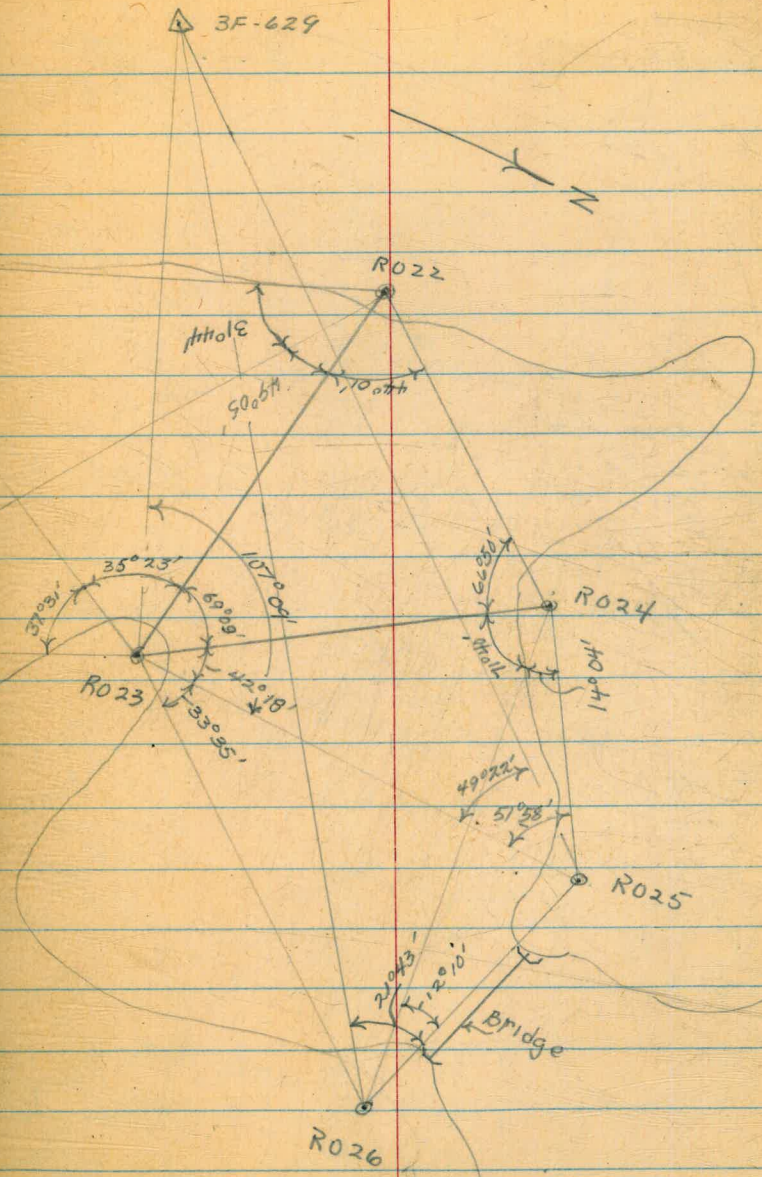 3F-629
N
R022
31°44'
44°01'
49°05'
107°09'
35°23'
37°31'
69°09'
42°18'
33°35'
R023
66°50'
R024
71°40'
14°04'
49°22'
51°58'
R025
21°43'
12°10'
Bridge
R026